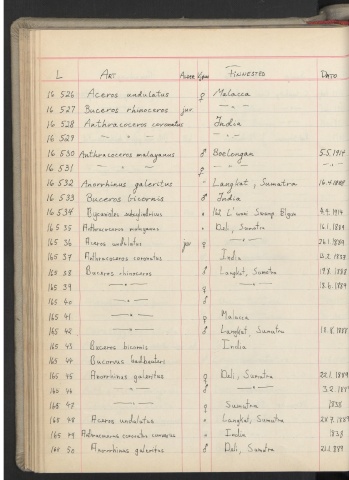 L ART ALDER KJØNN FINNESTED DATO
16 526 Aceros undulatus ♀ Malacca
16 527 Buceros rhinoceros juv — " —
16 528 Anthracoceros coronatus India
16 529 — " — — " —
16 530 Anthracoceros malayanus ♂ Boelongan 5.5.1914
16 531 — " — ♀ — " — — " —
16 532 Anorrhinus galeritus " Langkat, Sumatra
16 533 Buceros bicornis ♂ India
16 534 162 Elgon 4.4.1914
165 35 Anthracoceros malayanus " Deli, Sumatra 16.1.1889
165 36 Aceros undulatus juv ♀ — " — 26.1.1889
165 37 Anthracoceros coronatus India 1838
165 38 Buceros rhinoceros ♂ Langkat, Sumatra 19.8.1888
165 39 — " — ♀ — " — 18.6.1889
165 40 — " — ♂
165 41 — " — ♀ Malacca
165 42 — " — ♂ Langkat, Sumatra 18.8.1888
165 43 Buceros bicornis India
165 44 Bucorvus
165 45 Anorrhinus galeritus ♀ Deli, Sumatra 22.1.1889
165 46 — " — ♂ — " — 3.2.1889
165 47 — " — ♀ Sumatra 1838
165 48 Aceros undulatus " Langkat, Sumatra 28.7.1889
165 49 Anthracoceros coronatus " India 1838
165 50 Anorrhinus galeritus ♂ Deli, Sumatra 21.1.1889